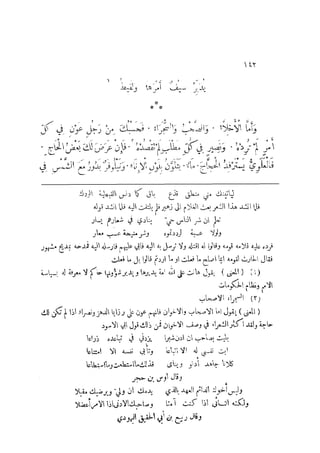 ١٤٢
يدبر سيف أمرها ولقيط ١
***
وأما الأخلاء . والصحب والسجراء . فحسبك من رجل عون في كل
أمر لم ترده . ونصير في كل مطلب لم تقصده . فإن عرض لك بعض الحاج .
الحجاج . ماء . يتلون بلون الإناء . ونيلوفر يدور مع الشمس في
ليأتينك مني منطق قذع باق كما دنس القبطية الودك
فلما انشد هذا الشعر بعث الغلام الى زهير فلم يلتفت اليه فلما انشد قوله
تعلم ان شر الناس حي ينادي في شعارهم يسار
ولولا عسبه لرددتموه وشر منيحة عسب معار
فرده عليه فلامه قومه وقالوا له اقتله ولا ترسل به اليه فأبى عليهم فارسله اليه فمدحه بمديح مشهور
فقال الحارث لقومه ايما اصلح ما فعلت او ما اردتم قالوا بل ما فعلت
(١) (المعنى) يقول هات على الله امة يديرها ويدبر شؤونها حاكم لا معرفة له بسياسة
الامم ونظام الحكومات
(٢) السجراء الاصحاب
(المعنى) يقول اما الاصحاب والاخوان فانهم عون على رزايا الدهر ونصراء اذا لم تكن لك
حاجة ولقد اكثر الشعراء في وصف الاخوان فمن ذلك قول ابي الاسود
بليت بصاحب ان ادن شبرا يزدني في تباعده ذراعا
ابت نفسي له الا اتباعا وتأبى نفسه الا امتناعا
كلانا جاهد ادنو وينأى فذلك ما استطعت وما استطاعا
وقال اوس بن حجر
وليس اخوك الدائم العهد بالذي يذمك ان ولى ويرضيك مقبلا
ولكنه النائي اذا كنت آمنا وصاحبك الادنى اذا الامر أعضلا
وقال ربيع بن أبي الحقيق اليهودي